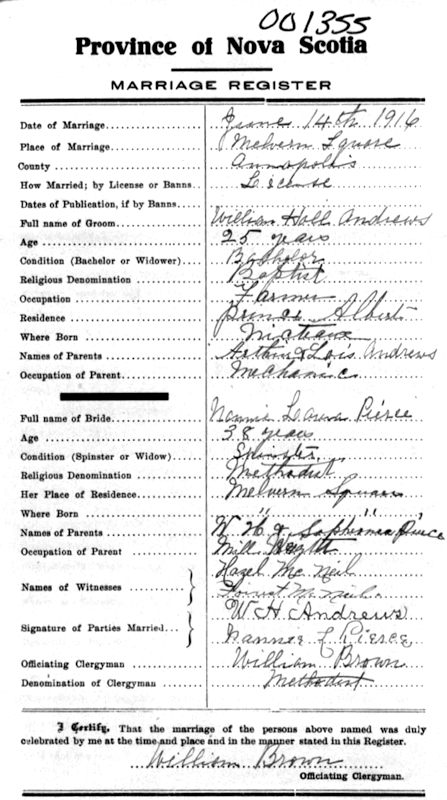 001355
Province of Nova Scotia
MARRIAGE REGISTER
Date of Marriage June 14th 1916
Place of Marriage Melvern Square
County Annapolis
How Married; by License or Banns License
Dates of Publication, if by Banns
Full name of Groom William Hall Andrews
Age 25 years
Condition (Bachelor or Widower) Bachelor
Religious Denomination Baptist
Occupation Farmer
Residence Prince Albert
Where Born Nictaux
Names of Parents Arthur & Lois Andrews
Occupation of Parent Mechanic
Full name of Bride Nannie Pierce
Age 38 years
Condition (Spinster or Widow) Spinster
Religious Denomination Methodist
Her Place of Residence Melvern Square
Where Born " "
Names of Parents W H & Pierce
Occupation of Parent Mill
Names of Witnesses Hazel Mc Neil
Forrest McNeil
Signature of Parties Married W H Andrews
Nannie L Pierce
Officiating Clergyman William Brown
Denomination of Clergyman Methodist
I Certify, That the marriage of the persons above named was duly
celebrated by me at the time and place and in the manner stated in this Register.
William Brown
Officiating Clergyman.